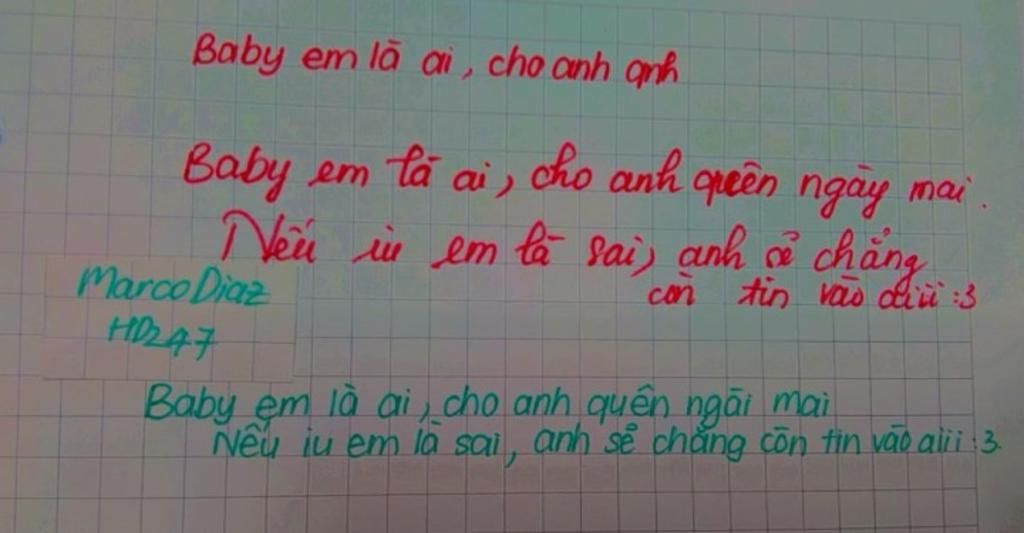 Baby em là ai, cho anh anh
Baby em là ai, cho anh quên ngày mai.
Nếu iu em là sai, anh sẽ chẳng
còn tin vào aiii :3
Marco Diaz
HD247
Baby em là ai, cho anh quên ngài mai
Nếu iu em là sai, anh sẽ chẳng còn tin vào aiii :3